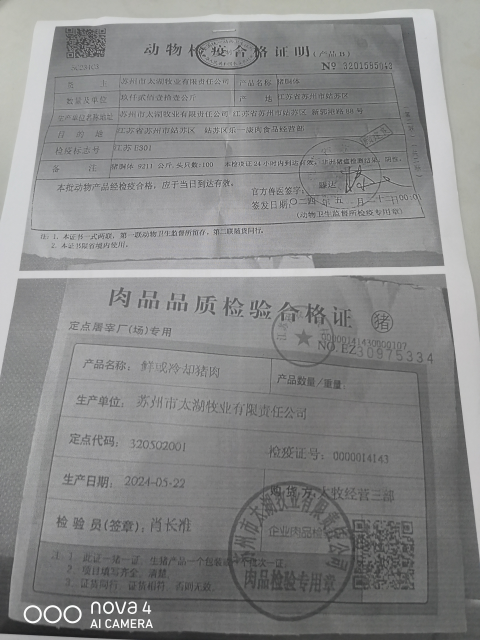 动物检疫合格证明(产品B)
№ 3201595043
货主 苏州市太湖牧业有限责任公司 产品名称 猪胴体
数量及单位 玖仟贰佰壹拾壹公斤 产地 江苏省苏州市姑苏区
生产单位名称地址 苏州市太湖牧业有限责任公司 江苏省苏州市姑苏区
目的地 江苏省苏州市姑苏区
检疫标志号 江苏
备注 猪胴体 9211 公斤, 头只数:100 本检疫证24小时内到达有效。
本批动物产品经检疫合格,应于当日到达有效。
官方兽医签字:
签发日期:二〇二四年五月
(动物卫生监督所检疫专用章)
注: 1. 本证书一式两联,第一联动物卫生监督所留存,第二联随货同行。
2. 本证书限省境内使用。
肉品品质检验合格证 猪
定点屠宰厂(场)专用
00000141430000107
NO.EZ30975334
产品名称: 鲜或冷却猪肉 产品数量/重量:
生产单位: 苏州市太湖牧业有限责任公司
定点代码: 320502001 检疫证号: 0000014143
生产日期: 2024-05-22 购货方: 太牧经营三部
检验员(签章): 肖长准 企业肉品检
苏州市太湖牧业有限责任公司
肉品检验专用章
注: 1. 此证一猪一证,
2. 项目填写齐全、清楚
3. 证货同行,证货相符,否则无效
nova 4
AI CAMERA